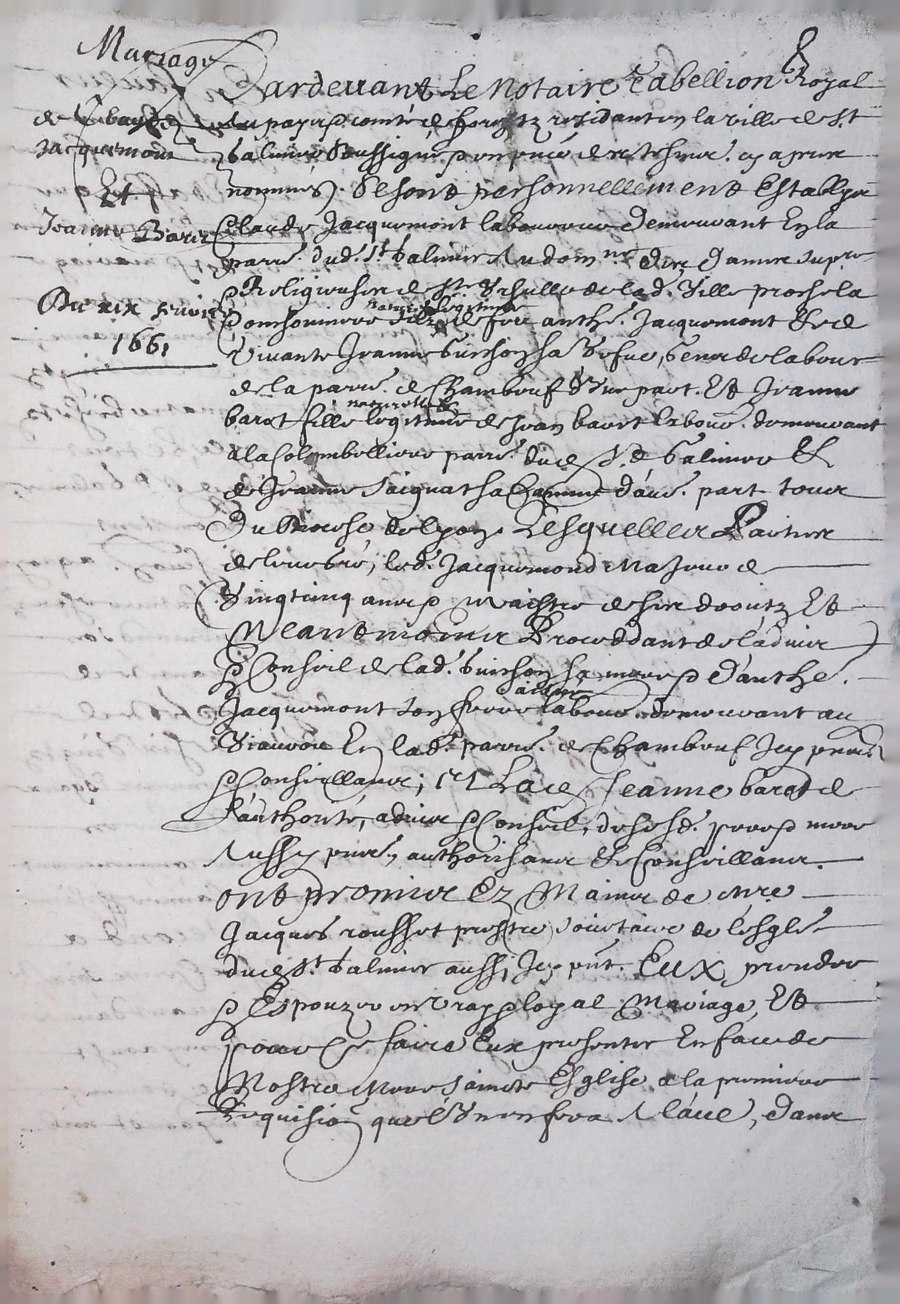 Mariage
de
Jacquemont
Et
Jeanne Barot
Du dix
1661
Pardevant Le Notaire Tabellion Royal
au pays & comté de forestz residant en la ville de St
galmier soubssigné & presence des tesmoins cy apres
nommés, Se sont personnellement Establys
Claude Jacquemont laboureur demeurant En la
parre. dud. St galmier Au dom.ne des dames supre
& Religieuses de Ste Ursulle de lad. Ville proche la
naturel & legitime
filz de feu anthe. Jacquemont & de
Vivante Jeanne sa Vefve,
de la parre. de Chambeuf d'une part. Et Jeanne
naturelle &
barot fille legitime de Jean barot labour. demeurant
a la Colombettiere parre. dud. St. Galmier &
de Jeanne Jacquat sa femme d'au.e part tous
Du diocese de Lyon, Lesquelles Parties
de leur gré, led. Jacquemond Majeur de
Vingtcinq ans & Maistre de ses droitz Et
Neantmoings Proceddant de l'advis
& Conseil de lad. sa mere & d'anthe.
Jacquemont son frere labour. demeurant au
En lad. parre. de Chambeuf Icy pnt
& Conseillant; Et Lad. Jeanne barot de
l'authorité, advis & Conseil, de sesd. pere & mere
Aussy pnts., authorisans & Conseillans.
ont promis Ez Mains de Mre
Jacques rousset prestre socitaire de l'esglise
dud. St. galmier aussi Icy pnt. Eux prendre
& Espouzer en vray & loyal Mariage, Et
pour ce faire Eux presenter En face de
Nostre Mere saincte Esglise a la premiere
Requision que l'Un en fera A l'aue, dans